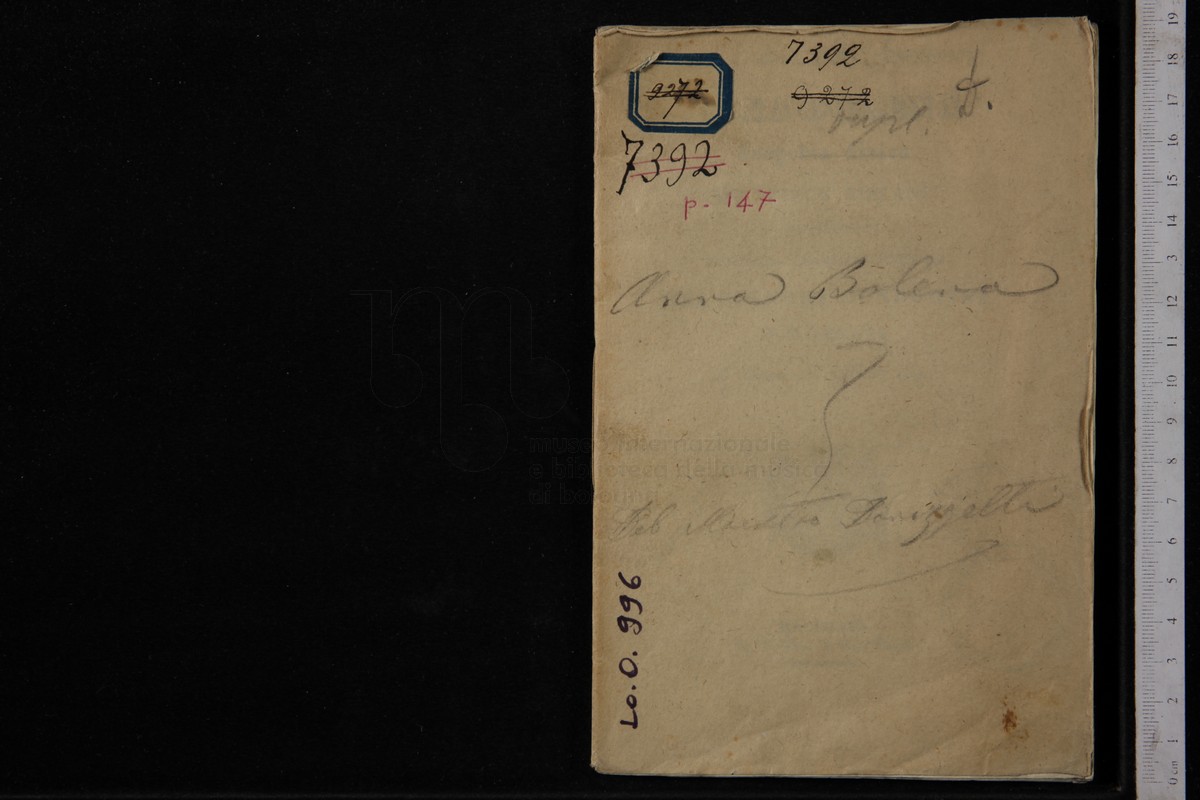 7392
9272
9272
dupl. D.
7392
p. 147
Anna Bolena
museo internazionale
e biblioteca della musica
di bologna
Del Maestro Donizzetti
Lo.O. 996
19
18
17
16
15
14
3
12
11
10
9
8
7
6
5
4
3
2
1
0 cm